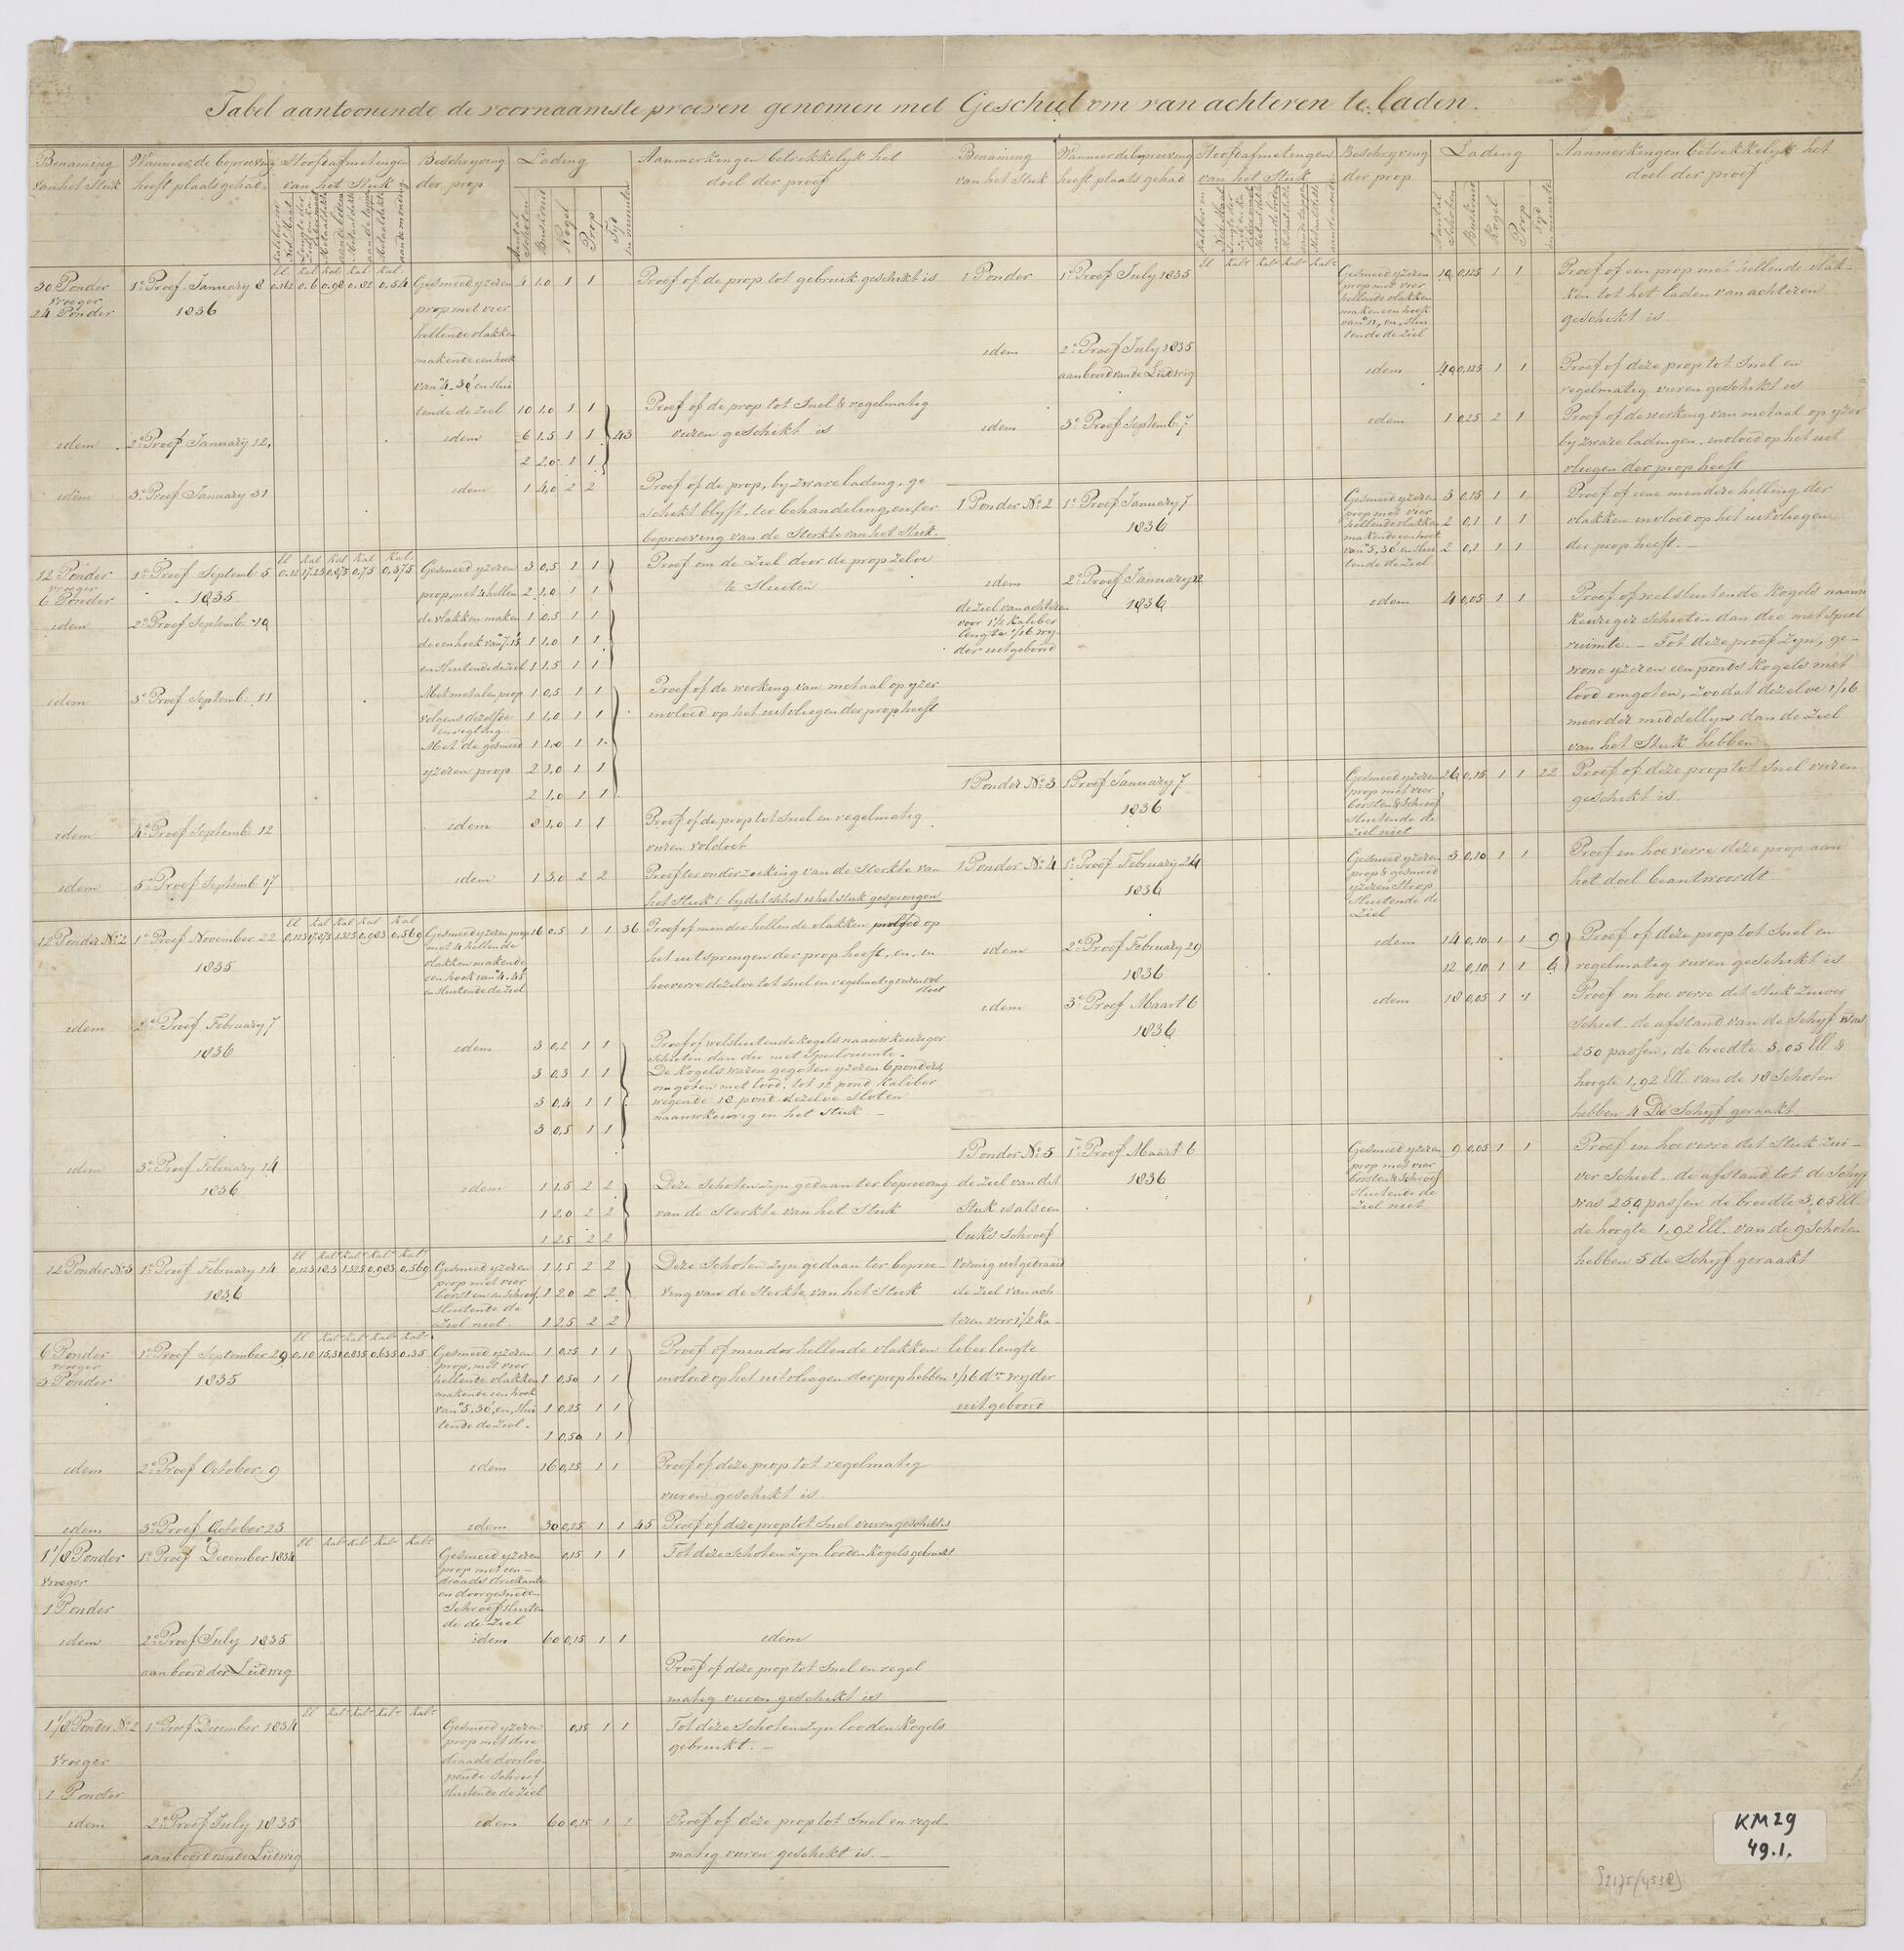 Tabel aantoonende de voornaamste proeven genomen met Geschut om van achteren te laden.
Benaming van het Stuk
Wanneer de beproeving heeft plaats gehad.
Hoofdafmetingen van het Stuk
Beschryving der prop
Lading
Aantal Schoten
Buskruid
Kogel
Prop
Tyd in minuten
Aanmerkingen betrekkelyk het doel der proef
El Kal Kal Kal Kal
30 Ponder vroeger 24 Ponder
1e Proef January 8 1836
0,162 0,6 0,98 0,82 0,54
Gesmeed yzeren prop met vier hellende vlakken makende een hoek van 4.30' en sluitende de Ziel
4 1.0 1 1
Proef of de prop tot gebruik geschikt is
idem
2e Proef January 12,
idem
10 1.0 1 1
6 1.5 1 1 43
2 2.0 1 1
Proef of de prop tot Snel & regelmatig
vuren geschikt is
idem
3e Proef January 31
idem
1 4,0 2 2
Proef of de prop, by zware lading, ge
schikt blyft, ter behandeling, en ter
beproeving van de Sterkte van het Stuk.
El Kal Kal Kal Kal
12 Ponder vroeger 6 Ponder
1e Proef Septemb 5 1835
Gesmeed yzeren prop, met 4 hellende vlakken makende een hoek van 7.15 en Sluitende de Ziel
3 0,5 1 1
2 1.0 1 1
Proef om de Ziel door de prop zelve
te Sluiten
idem
2e Proef Septemb 10
1 0,5 1 1
1 1,0 1 1
1 1.5 1 1
idem
3e Proef Septemb. 11
Met metalen prop volgens dezelfde inrigting
Met de gesmeed yzeren prop
1 0,5 1 1
1 1,0 1 1
1 1.0 1 1
2 1.0 1 1
2 1,0 1 1
Proef of de werking van metaal op yzer
invloed op het uitvliegen der prop heeft
idem
4e Proef Septemb 12
idem
8 1,0 1 1
Proef of de prop tot Snel en regelmatig
vuren voldoet
idem
5e Proef Septemb 17
idem
1 3,0 2 2
Proef ter onderzoeking van de Sterkte van
het Stuk /: by dit Schot is het Stuk gesprongen
El Kal Kal Kal Kal
12 Ponder No 2
1e Proef November 22 1835
Gesmeed yzeren prop met 4 hellende vlakken makende een hoek van 4.45' en Sluitende de Ziel
16 0.5 1 1 36
Proef of minder hellende vlakken invloed op
het uitspringen der prop heeft, en, in
hoeverre dezelve tot Snel en regelmatig vuren vol
doet
idem
2e Proef February 7 1836
idem
3 0,2 1 1
3 0.3 1 1
3 0,4 1 1
3 0,5 1 1
Proef of welsluitende kogels naauwkeuriger
Schieten dan die met Speelruimte.
De Kogels waren gegoten yzeren 6 ponders,
omgoten met lood, tot 12 pond Kaliber
wegende 18 pond. dezelve Sloten
naauwkeurig in het Stuk. —
idem
3e Proef February 14 1836
idem
1 1,5 2 2
1 2.0 2 2
1 2,5 2 2
Deze Schoten Zyn gedaan ter beproeving
van de Sterkte van het Stuk
12 Ponder No 3
1e Proef February 14 1836
Gesmeed yzeren prop met vier borsten en schroef Sluitende de Ziel niet.
1 1,5 2 2
1 2.0 2 2
1 2.5 2 2
Deze Schoten Zyn gedaan ter beproe—
ving van de Sterkte van het Stuk
El Kal Kal Kal Kal
6 Ponder vroeger 3 Ponder
1e Proef September 29 1835
0,10 15.31 0,835 0,635 0.35
Gesmeed yzeren prop, met vier hellende vlakken makende een hoek van 5.30', en Sluitende de Ziel.
1 0,25 1 1
1 0,50 1 1
1 0,25 1 1
1 0,50 1 1
Proef of minder hellende vlakken
invloed op het uitvliegen der prop hebben
idem
2e Proef October 9
idem
16 0,25 1 1
Proef of deze prop tot regelmatig
vuren geschikt is.
idem
3e Proef October 23
idem
30 0,25 1 1 45
Proef of deze prop tot Snel vuren geschikt is
El Kal Kal Kal Kal
1 1/8 Ponder vroeger 1 Ponder
1e Proef December 1834
0,15 1 1
Tot deze Schoten Zyn looden Kogels gebruikt
idem
2e Proef July 1835 aan boord der Ludwig
idem
60 0,15 1 1
idem
Proef of deze prop tot Snel en regel
matig vuren geschikt is
El Kal Kal Kal Kal
1 1/8 Ponder No 2 vroeger 1 Ponder
1e Proef December 1834
Gesmeed yzeren prop met drie draads doorloopende Schroef Sluitende de Ziel
0,15 1 1
Tot deze Schoten Zyn looden Kogels
gebruikt. —
idem
2e Proef July 1835 aan boord van de Ludwig
idem
60 0,15 1 1
Proef of deze prop tot Snel en regel
matig vuren geschikt is. —
Benaming van het Stuk
Wanneer de beproeving heeft plaats gehad
Hoofdafmetingen van het Stuk
Beschryving der prop
Lading
Aantal Schoten
Buskruid
Kogel
Prop
Tyd in minuten
Aanmerkingen betrekkelyk het doel der proef
El Kal Kal Kal Kal
1 Ponder
1e Proef July 1835
Gesmeed yzeren prop met vier hellende vlakken maken een hoek van 12, en, Sluitende de Ziel
10 0,125 1 1
Proef of een prop met hellende vlak—
ken tot het laden van achteren
geschikt is.
idem
2e Proef July 1835 aan boord van de Ludwig
idem
40 0,125 1 1
Proef of deze prop tot Snel en
regelmatig vuren geschikt is
idem
3e Proef Septemb. 7
idem
1 0,25 2 1
Proef of de werking van metaal op yzer
by zware ladingen, invloed op het uit
vliegen der prop heeft
1 Ponder No 2
1e Proef January 7 1836
Gesmeed yzeren prop met vier hellende vlakken makende een hoek van 5,30' en Sluitende de Ziel
3 0,15 1 1
2 0,1 1 1
2 0,1 1 1
Proef of eene mindere helling, der
vlakken invloed op het uitvliegen
der prop heeft. —
idem
de Ziel van achteren voor 1 1/2 Kaliber lengte 1/16 wyder uitgeboord
2e Proef January 12 1836
idem
4 0,05 1 1
Proef of welsluitende Kogels naauw
keuriger Schieten dan die met Speel
ruimte. — Tot deze proef Zyn, ge—
wone yzeren een ponds Kogels met
lood omgoten, zoodat dezelve 1/16
meerder middellyn dan de Ziel
van het Stuk hebben.
1 Ponder No 3
1 Proef January 7 1836
Gesmeed yzeren prop met vier borsten & Schroef Sluitende de Ziel niet
20 0,15 1 1 22
Proef of deze prop tot Snel vuren
geschikt is.
1 Ponder No 4
1e Proef February 24 1836
Gesmeed yzeren prop & gesmeed yzeren Strop Sluitende de Ziel
3 0,10 1 1
Proef in hoe verre deze prop aan
het doel beantwoordt
idem
2e Proef February 29 1836
idem
14 0,10 1 1 9
12 0,10 1 1 6
Proef of deze prop tot Snel en
regelmatig vuren geschikt is
idem
3e Proef Maart 6 1836
idem
18 0,05 1 1
Proef in hoe verre dit Stuk Zuiver
Schiet, de afstand van de Schyf was
250 passen, de breedte 3,05 Ell. &
hoogte 1,92 Ell. van de 18 Schoten
hebben 4 De Schyf geraakt
1 Ponder No 5
de Ziel van dit Stuk is als een buks Schroef vormig uitgedraaid de Ziel van achteren voor 1 1/2 Kaliber lengte 1/16 dm wyder uitgeboord
1e Proef Maart 6 1836
Gesmeed yzeren prop met vier borsten & Schroef Sluitende de Ziel niet
9 0,05 1 1
Proef in hoeverre dit Stuk Zui—
ver Schiet, de afstand tot de Schyf
was 250 passen de breedte 3,05 Ell.
de hoogte 1,92 Ell. van de 9 Schoten
hebben 5 de Schyf geraakt
KM29
49.1.